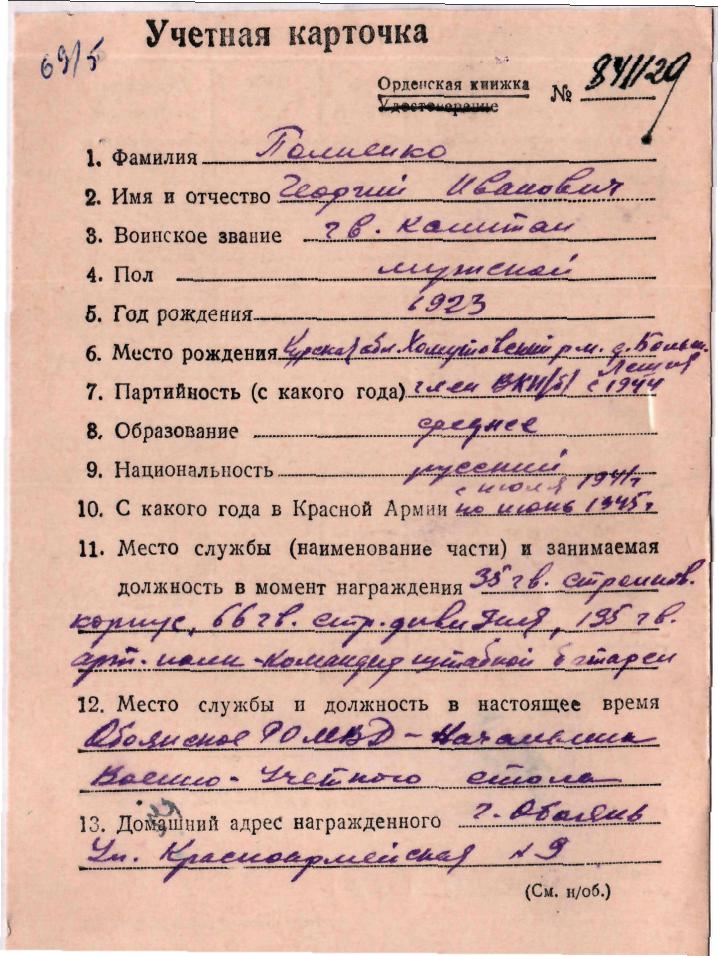 69/5
Учетная карточка
Орденская книжка № 841129
Удостоверение
1. Фамилия Полиенко
2. Имя и отчество Георгий Иванович
3. Воинское звание гв. капитан
4. Пол мужской
5. Год рождения 1923
6. Место рождения Курская обл. Хомутовский р-н. д. Больш.
7. Партийность (с какого года) член ВКП(б) с 1944
8. Образование среднее
9. Национальность русский
с июля 1941г
10. С какого года в Красной Армии по июнь 1945г
11. Место службы (наименование части) и занимаемая
должность в момент награждения 35 гв. стрелков.
корпус, 66 гв. стр. дивизия, 135 гв.
арт. полк - командир штабной батареи
12. Место службы и должность в настоящее время
Обоянское РОМВД - Начальник
Военно-Учетного стола
13. Домашний адрес награжденного г. Обоянь
Ул. Красноармейская №9
(См. н/об.)